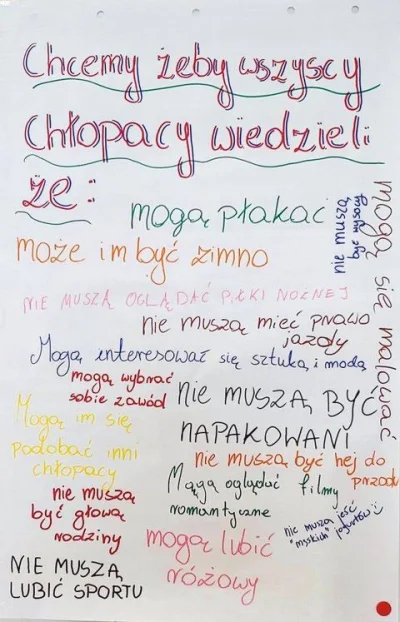 Chcemy żeby wszyscy
chłopacy wiedzieli
że:
mogą płakać
nie muszą
być wysocy
mogą się malować
może im być zimno
NIE MUSZĄ OGLĄDAĆ PIŁKI NOŻNEJ
nie muszą mieć prawo
jazdy
Mogą interesować się sztuką i modą
mogą wybrać
sobie zawód
NIE MUSZĄ BYĆ
NAPAKOWANI
Mogą im się
podobać inni
chłopacy
nie muszą być hej do
przodu
Mogą oglądać filmy
romantyczne
nie muszą
być głową
rodziny
nie muszą jeść
"męskich" jogurtów :)
mogą lubić
różowy
NIE MUSZĄ
LUBIĆ SPORTU